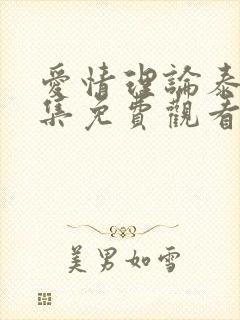 愛情理論泰
集免費觀看
美男如雪